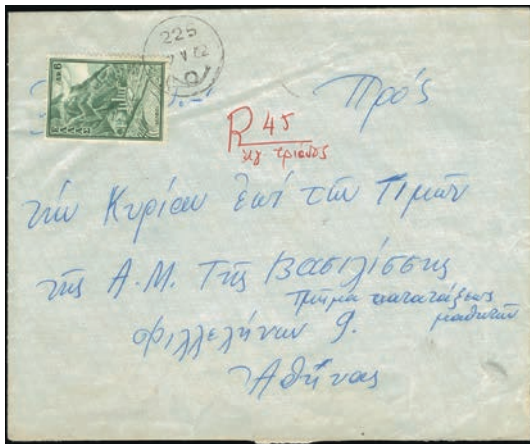 225
V 62
ΕΛΛΑΣ
ΔΡ. 6
Πρός
R 45
Αγ τριάδος
τήν Κυρίαν ἐπί τῶν Τιμῶν
τῆς Α.Μ. Τῆς Βασιλίσσης
Τμῆμα κατατάξεως
μαθητῶν
Φιλλελήνων 9.
Ἀθήνας